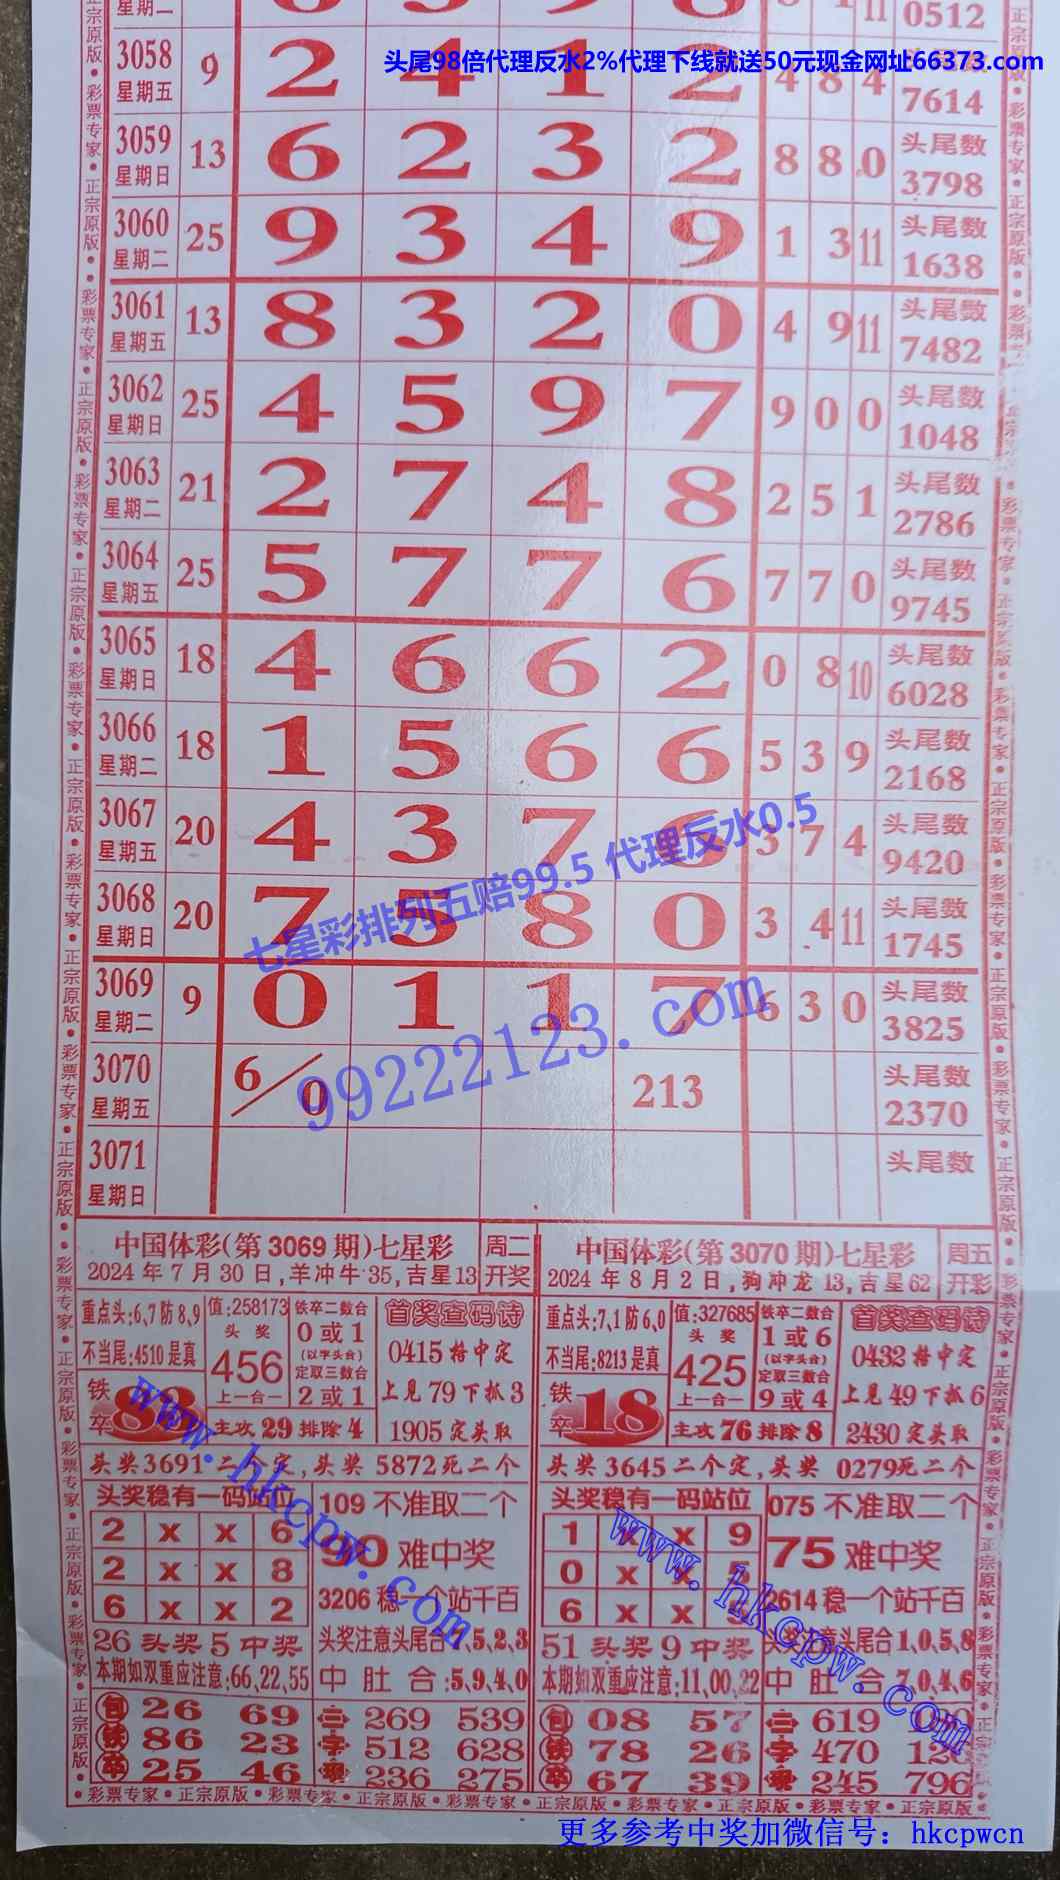 头尾98倍代理反水2%代理下线就送50元现金网址66373.com
星期二 0512
3058 星期五 9 2 4 1 2 4 8 4 7614
3059 星期日 13 6 2 3 2 8 8 0 头尾数 3798
3060 星期二 25 9 3 4 9 1 3 11 头尾数 1638
3061 星期五 13 8 3 2 0 4 9 11 头尾数 7482
3062 星期日 25 4 5 9 7 9 0 0 头尾数 1048
3063 星期二 21 2 7 4 8 2 5 1 头尾数 2786
3064 星期五 25 5 7 7 6 7 7 0 头尾数 9745
3065 星期日 18 4 6 6 2 0 8 10 头尾数 6028
3066 星期二 18 1 5 6 6 5 3 9 头尾数 2168
3067 星期五 20 4 3 7 6 3 7 4 头尾数 9420
七星彩排列五赔99.5 代理反水0.5
3068 星期日 20 7 5 8 0 3 4 11 头尾数 1745
3069 星期二 9 0 1 1 7 6 3 0 头尾数 3825
99222123.com
3070 星期五 6/0 213 头尾数 2370
3071 星期日 头尾数
中国体彩(第3069期)七星彩 周二开奖
2024年7月30日,羊冲牛35,吉星13
重点头:6、7防8、9
不当尾:4510是真
值:258173
头奖
456
上一合一
铁卒二数合
0或1
(以字头合)
定取三数合
2或1
首奖查码诗
0415搭中定
上见79下抓3
1905定头取
铁卒 83
主攻29排除4
头奖3691二个定,头奖5872死二个
头奖稳有一码站位
2 x x 6
2 x x 8
6 x x 2
109不准取二个
90难中奖
3206稳一个站千百
26头奖5中奖
本期如双重应注意:66,22,55
中肚合:5、9、4、0
包铁卒
26 69
86 23
25 46
二字现
269 539
512 628
236 275
中国体彩(第3070期)七星彩 周五开彩
2024年8月2日,狗冲龙13,吉星62
重点头:7、1防6、0
不当尾:8213是真
值:327685
头奖
425
上一合一
铁卒二数合
1或6
(以字头合)
定取三数合
9或4
首奖查码诗
0432搭中定
上见49下抓6
2430定头取
铁卒 18
主攻76排除8
头奖3645二个定,头奖0279死二个
头奖稳有一码站位
1 x x 9
0 x x 5
6 x x
075不准取二个
75难中奖
2614稳一个站千百
51头奖9中奖
头奖注意头尾合1、0、5、8
本期如双重应注意:11,00,22
中肚合:7、0、4、6
包铁卒
08 57
78 26
67 39
二字现
619
470
245 796
www.hkcpw.com
www.hkcpw.com
彩票专家•正宗原版•彩票专家•正宗原版•彩票专家•正宗原版•彩票专家•正宗原版•彩票专家•正宗原版
更多参考中奖加微信号：hkcpwcn